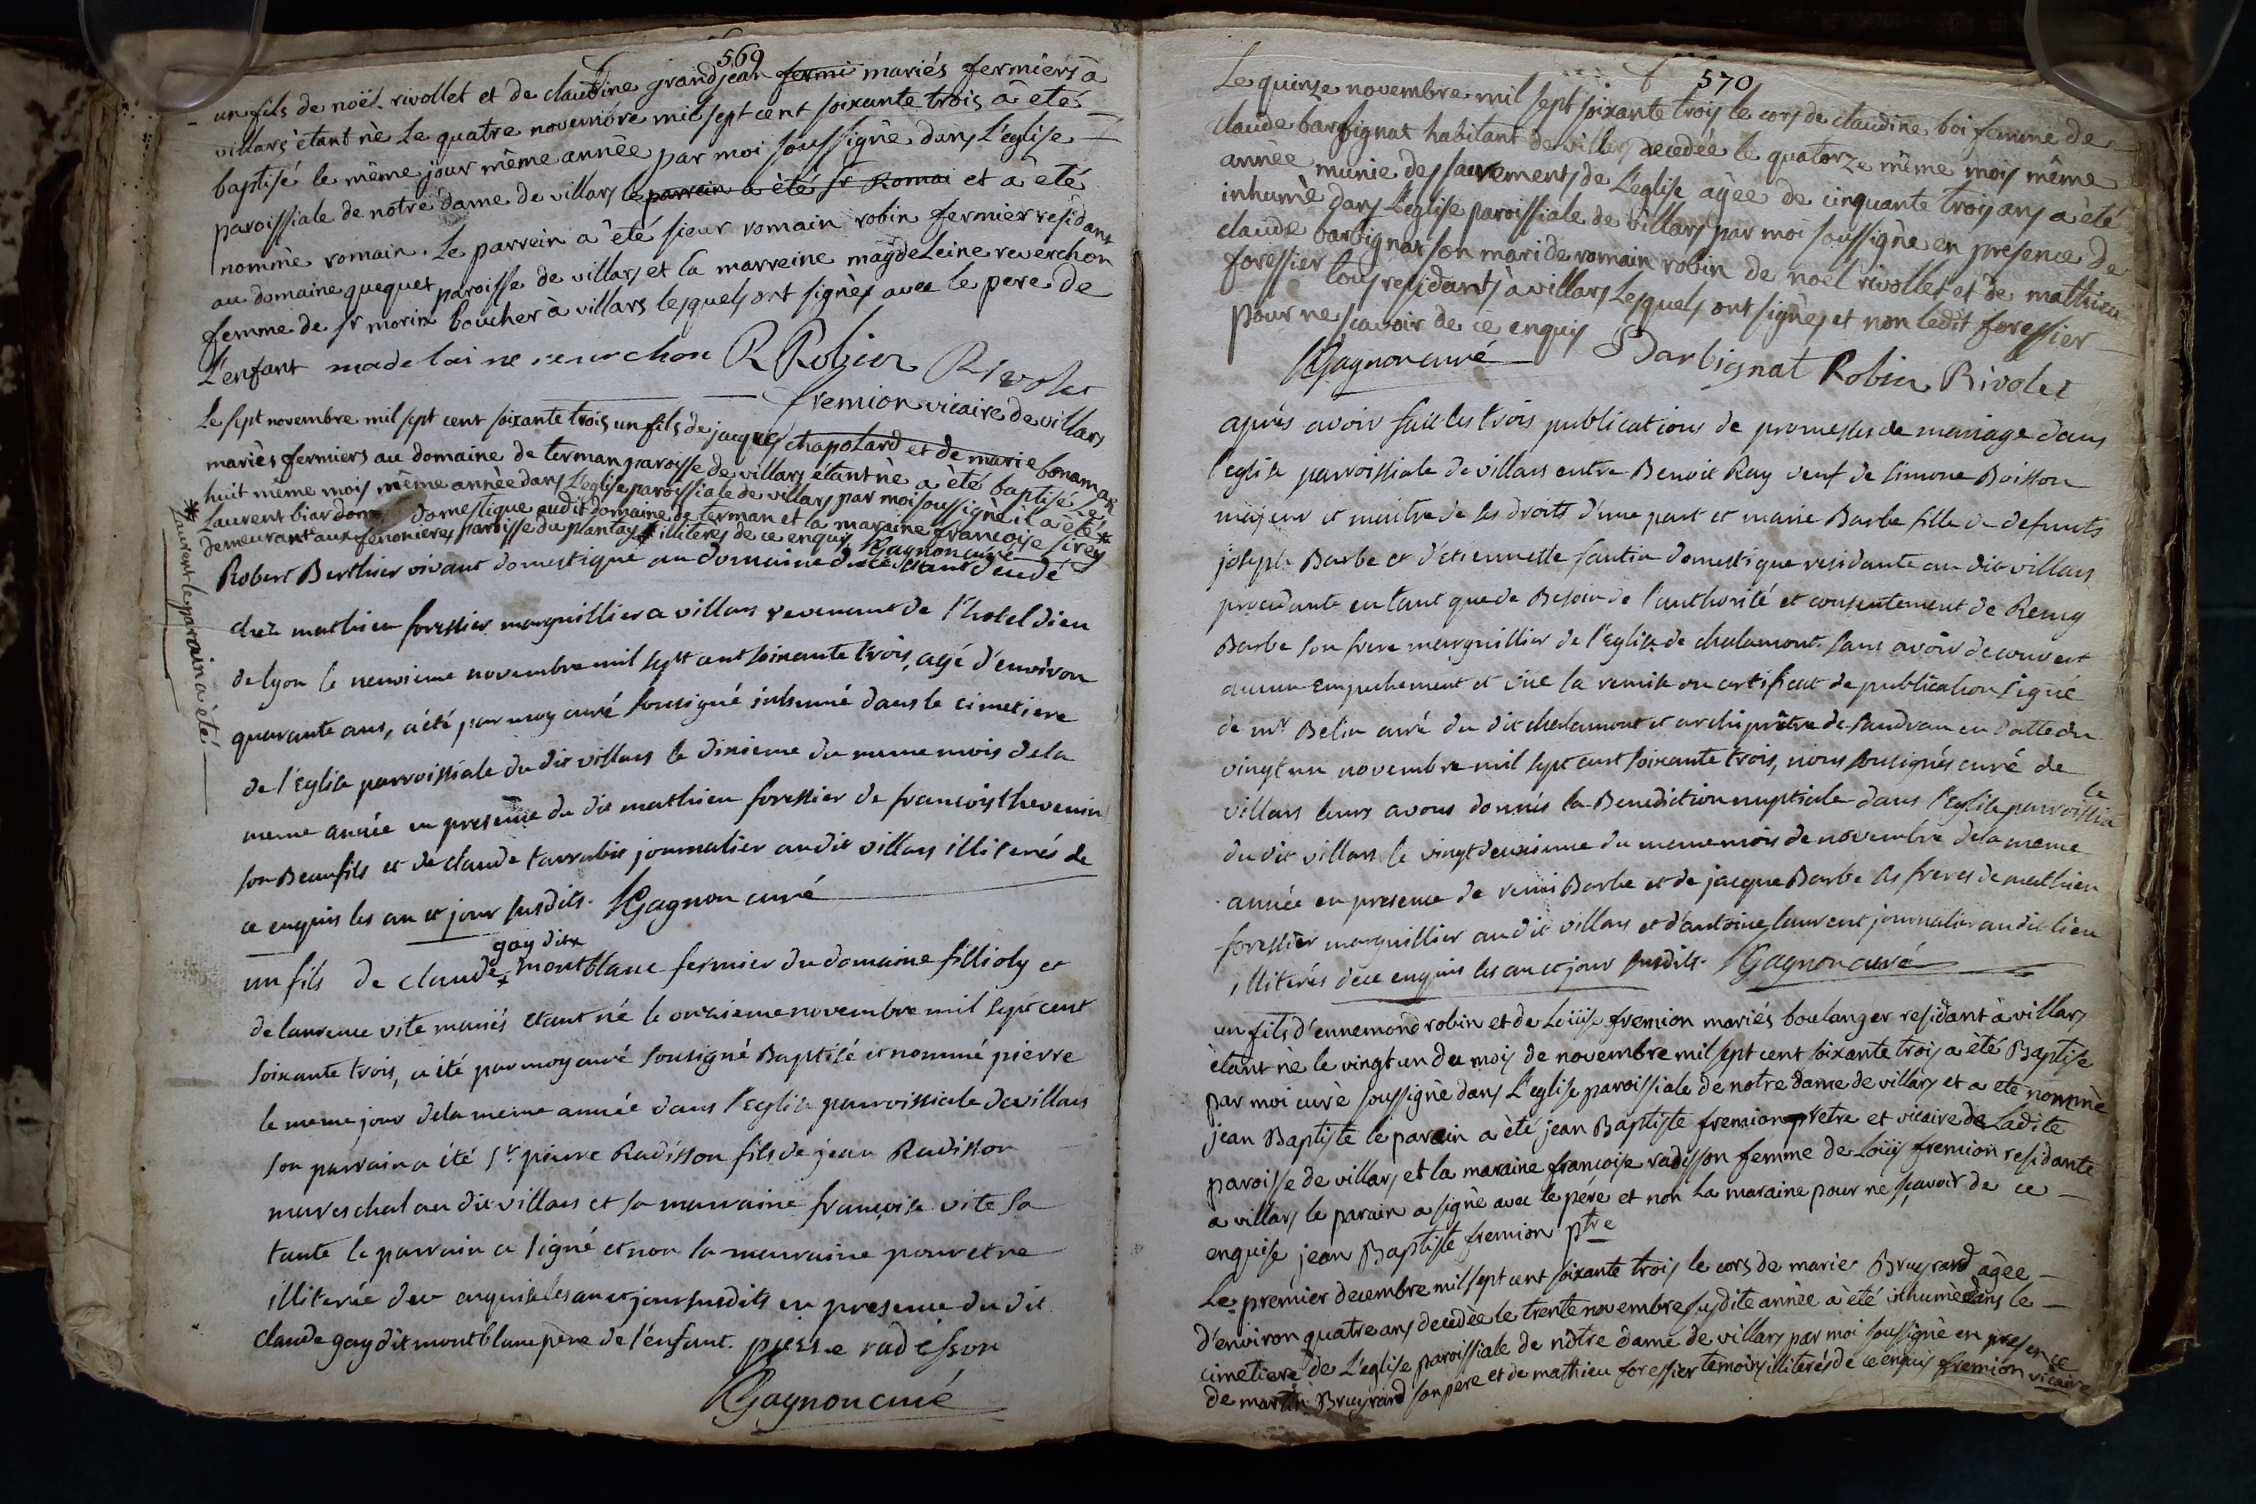 569
un fils de noël rivollet et de claudine grandjean fermi mariés fermiers à
villars étant né Le quatre novembre mil sept cent soixante trois à été
baptisé le même jour même année par moi soussigné dans L'église
paroissiale de notre dame de villars le parrain a été sr Romai et à été
nommé romain. Le parrein a été sieur romain robin fermier residant
au domaine quequet paroisse de villars et la marreine magdeleine reverchon
femme de sr morin boucher à villars lesquels ont signés avec le pere de
L'enfant madelaine reurchon R Robin Rivolet
fremion vicaire de villars
Le sept novembre mil sept cent soixante trois un fils de jacques chapolard et de marie bonamar
mariés fermiers au domaine de terman paroisse de villars étant né a été baptisé Le
huit même mois même année dans L'eglise paroissiale de villars par moi soussigné il a été *
Laurent biar dom domestique audit domaine de terman et la maraine francoise sirey
demeurant aux fenonieres paroisse du plantay * illiteres de ce enquis Gagnon curé
* Laurent le parrain a été
Robert Berthier vivant domestique au domaine du est decedé
chez mathieu forestier marguillier a villars revenant de l'hotel dieu
de lyon le neuvieme novembre mil sept cent soixante trois, agé d'environ
quarante ans, a été par moy curé sousigné inhumé dans le cimetiere
de l'Eglise parroissiale du dit villars le dixieme du meme mois de la
meme année en presence du dit mathieu forestier de francois thevenin
son Beaufils et de claude tarrabit journalier au dit villars illiterés de
ce enquis les an et jour susdits. Gagnon curé
gay dit
un fils de claude x montblanc fermier du domaine fillioly et
de laurence vite mariés etant né le onzieme novembre mil sept cent
soixante trois, a été par moy curé sousigné Baptisé et nommé pierre
le meme jour de la meme année dans l'Eglise parroissiale de villars
son parrain a été sr pierre Radisson fils de jean Radisson
mareschal au dit villars et sa marraine françoise vite sa
tante le parrain a signé et non la marraine pour etre
illiterée de ce enquise les an et jour susdits en presence du dit
claude gay dit montblanc père de l'enfant. pierre radisson
Gagnon curé
570
Le quinze novembre mil sept soixante trois le cors de claudine boi femme de
claude barbignat habitant de villars decedée le quatorze même mois même
année munie des sacrements de L'eglise agée de cinquante trois ans a été
inhumé dans L'eglise paroissiale de villars par moi soussigné en presence de
claude barbignat son mari de romain robin de noel rivollet et de mathieu
foressier tous residants à villars Lesquels ont signés et non ledit foressier
pour ne scavoir de ce enquis
Gagnon curé Barbignat Robin Rivolet
après avoir fait les trois publications de promesses de mariage dans
l'eglise parroissiale de villars entre Benoit Ray veuf de simone Boisson
majeur et maitre de ses droits d'une part et marie Barbe fille de defunts
joseph Barbe et d'etiennette fautin domestique residante au dit villars
procedante en tant que de Besoin de l'authorité et consentement de Remy
Barbe son frere marguillier de l'Eglise de chalamont. sans avoir decouvert
aucun empechement et vue la remise ou certificat de publication signé
de mr Belin curé du dit chalamont et archiprêtre de sandran en datte du
vingt un novembre mil sept cent soixante trois, nous sousignés curé de
villars leurs avons donnés la Benediction nuptiale dans l'Eglise parroissiale
du dit villars le vingt deuxieme du meme mois de novembre de la meme
année en presence de remi Barbe et de jacque Barbe ses freres de mathieu
forestier marguillier au dit villars et d'antoine laurent journalier au dit lieu
illiterés de ce enquis les an et jour susdits. Gagnon curé
un fils d'ennemond robin et de Loüise fremion mariés boulanger residant à villars
étant né le vingt un du mois de novembre mil sept cent soixante trois a été Baptise
par moi curé soussigné dans L'eglise paroissiale de notre dame de villars et a eté nommé
jean Baptiste le parain a été jean Baptiste fremion pretre et vicaire de Ladite
paroisse de villars et la maraine francoise radisson femme de Loüis fremion residante
a villars le parain a signé avec le père et non La maraine pour ne scavoir de ce
enquise jean Baptiste fremion ptre
Le premier decembre mil sept cent soixante trois le cors de marie Bruyrard agée
d'environ quatre ans decedée le trente novembre susdite année a été inhumé dans le
cimetiere de L'eglise paroissiale de nôtre dame de villars par moi soussigné en presence
de martin Bruyrard son pere et de mathieu foressier temoins illiterés de ce enquis fremion vicaire